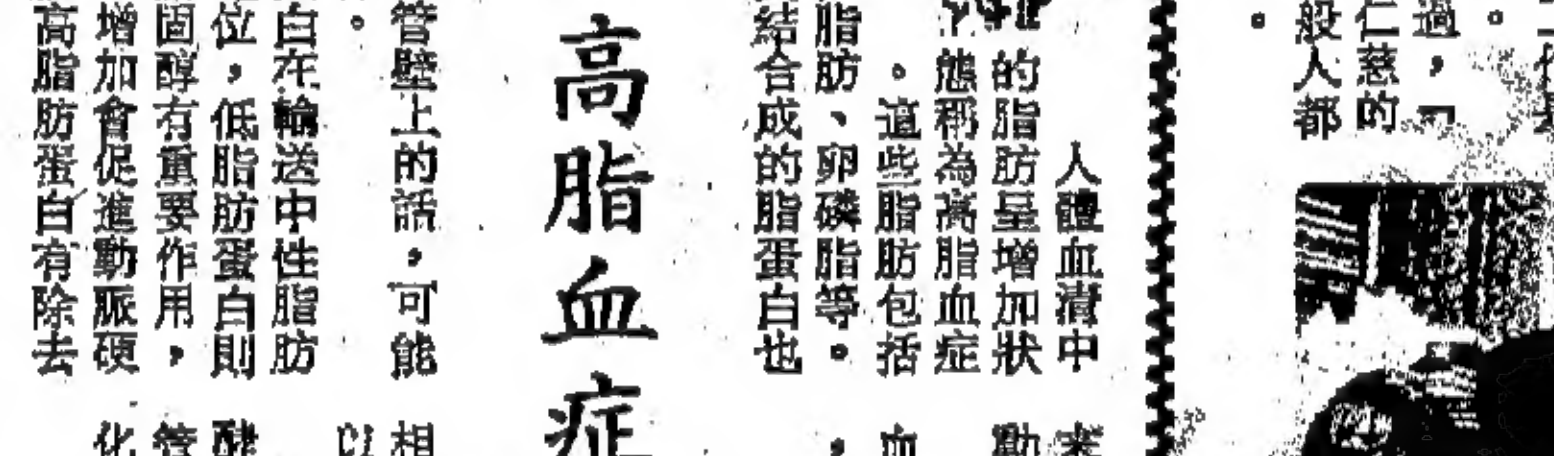 過，「
仁慈的
般人都
。
人體血清中
的脂肪呈增加狀
態稱為高脂血症
。這些脂肪包括
脂肪、卵磷脂等。
結合成的脂蛋白也
高脂血症
管壁上的話，可能
。
白在輸送中性脂肪
位，低脂肪蛋白則
固醇有重要作用，
增加會促進動脈硬
高脂肪蛋白有除去
動
血
，
相
以
酵
管
化